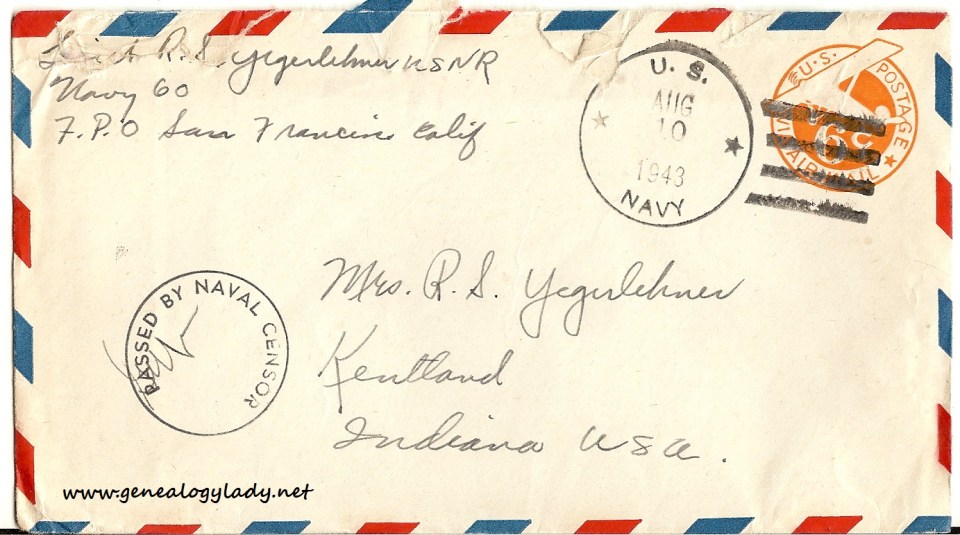 Lieut R. S. Yegerlehner USNR
Navy 60
F.P.O San Francisco Calif
U. S.
AUG
10
1943
NAVY
U.S. POSTAGE
6c
VIA AIR MAIL
PASSED BY NAVAL CENSOR
Mrs. R. S. Yegerlehner
Kentland
Indiana USA.
www.genealogylady.net